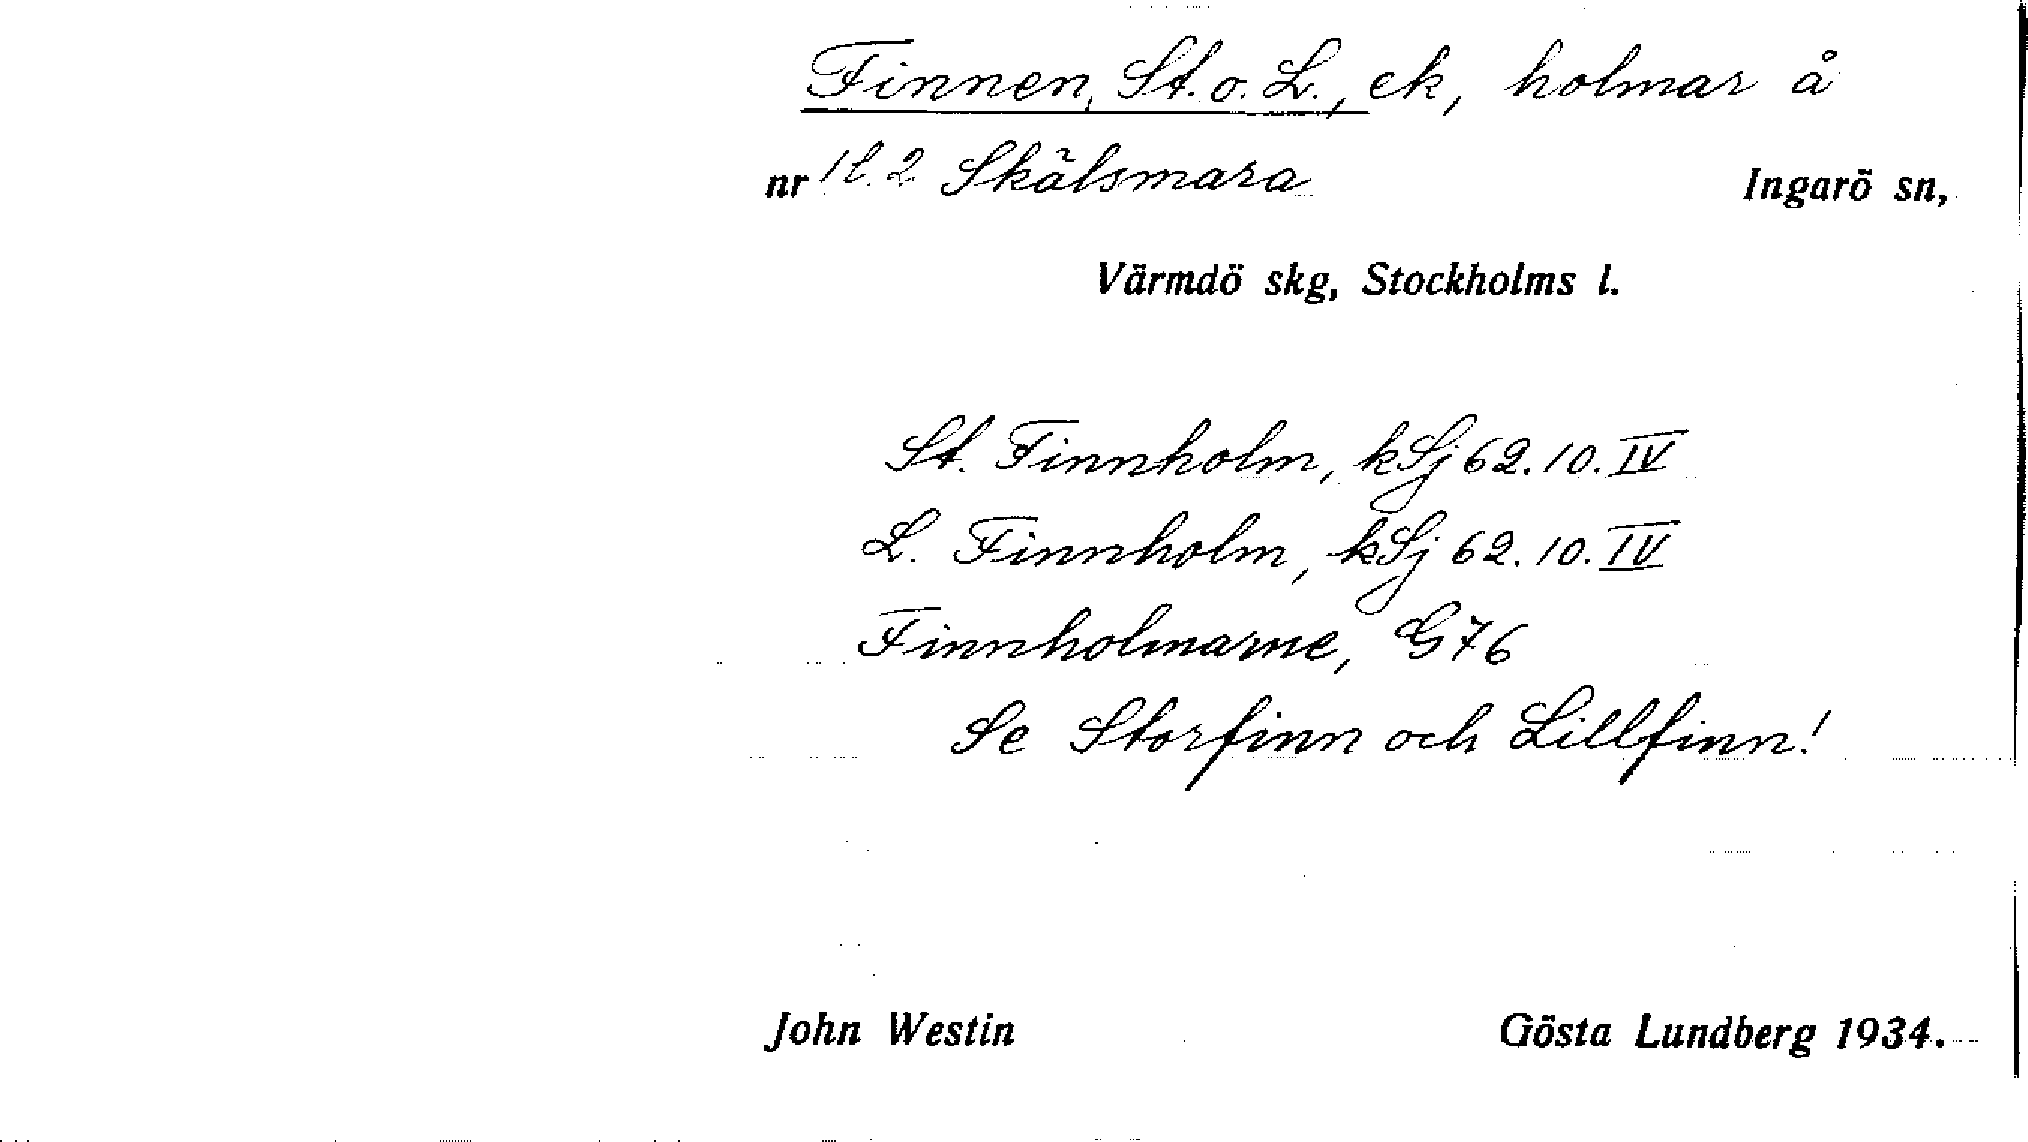 Finnen, St. o. L., ek, holmar å
nr 1 l. 2 Skälsmara Ingarö sn,
Värmdö skg, Stockholms l.
St. Finnholm, kSj 62.10.IV
L. Finnholm, kSj 62.10.IV
Finnholmarne, G76
Se Storfinn och Lillfinn!
John Westin Gösta Lundberg 1934.